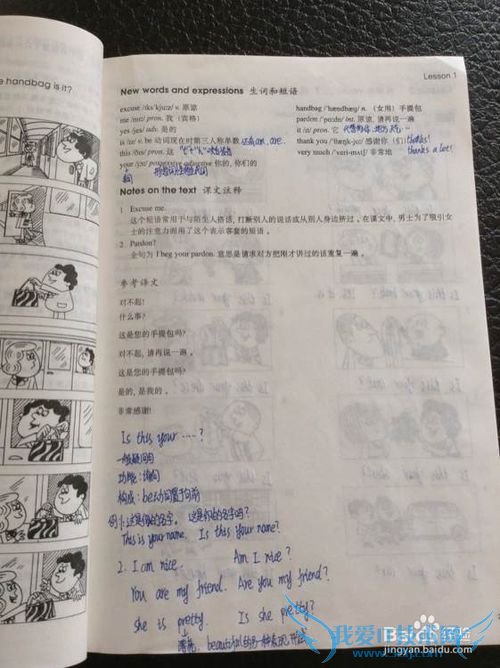 Lesson 1
e handbag is it?
New words and expressions 生词和短语
excuse /ɪkˈskjuːz/ v. 原谅
me /miː/ pron. 我（宾格）
yes /jes/ adv. 是的
is /ɪz/ v. be 动词现在时第三人称单数 还有am, are.
this /ðɪs/ pron. 这
your /jɔː/ possessive adjective 你的, 你们的
handbag /ˈhændbæg/ n.（女用）手提包
pardon /ˈpɑːdn/ int. 原谅, 请再说一遍
it /ɪt/ pron. 它
thank you /θæŋk-juː/ 感谢你（们） thanks!
very much /ˈveri-mʌtʃ/ 非常地 thanks a lot!
Notes on the text 课文注释
1 Excuse me.
这个短语常用于与陌生人搭话, 打断别人的说话或从别人身边挤过。在课文中, 男士为了吸引女
士的注意力而用了这个表示客套的短语。
2 Pardon?
全句为 I beg your pardon. 意思是请求对方把刚才讲过的话重复一遍。
参考译文
对不起!
什么事?
这是您的手提包吗?
对不起, 请再说一遍。
这是您的手提包吗?
是的, 是我的。
非常感谢!
Is this your ....?
一般疑问句
功能: 询问
构成: be动词置于句前
例1: 这是你的名字。 这是你的名字吗?
This is your name. Is this your name?
2. I am nice. Am I nice?
You are my friend. Are you my friend?
she is pretty. Is she pretty?
漂亮 beautiful的另一种表现形式
Baidu 经验
jingyan.baidu.com